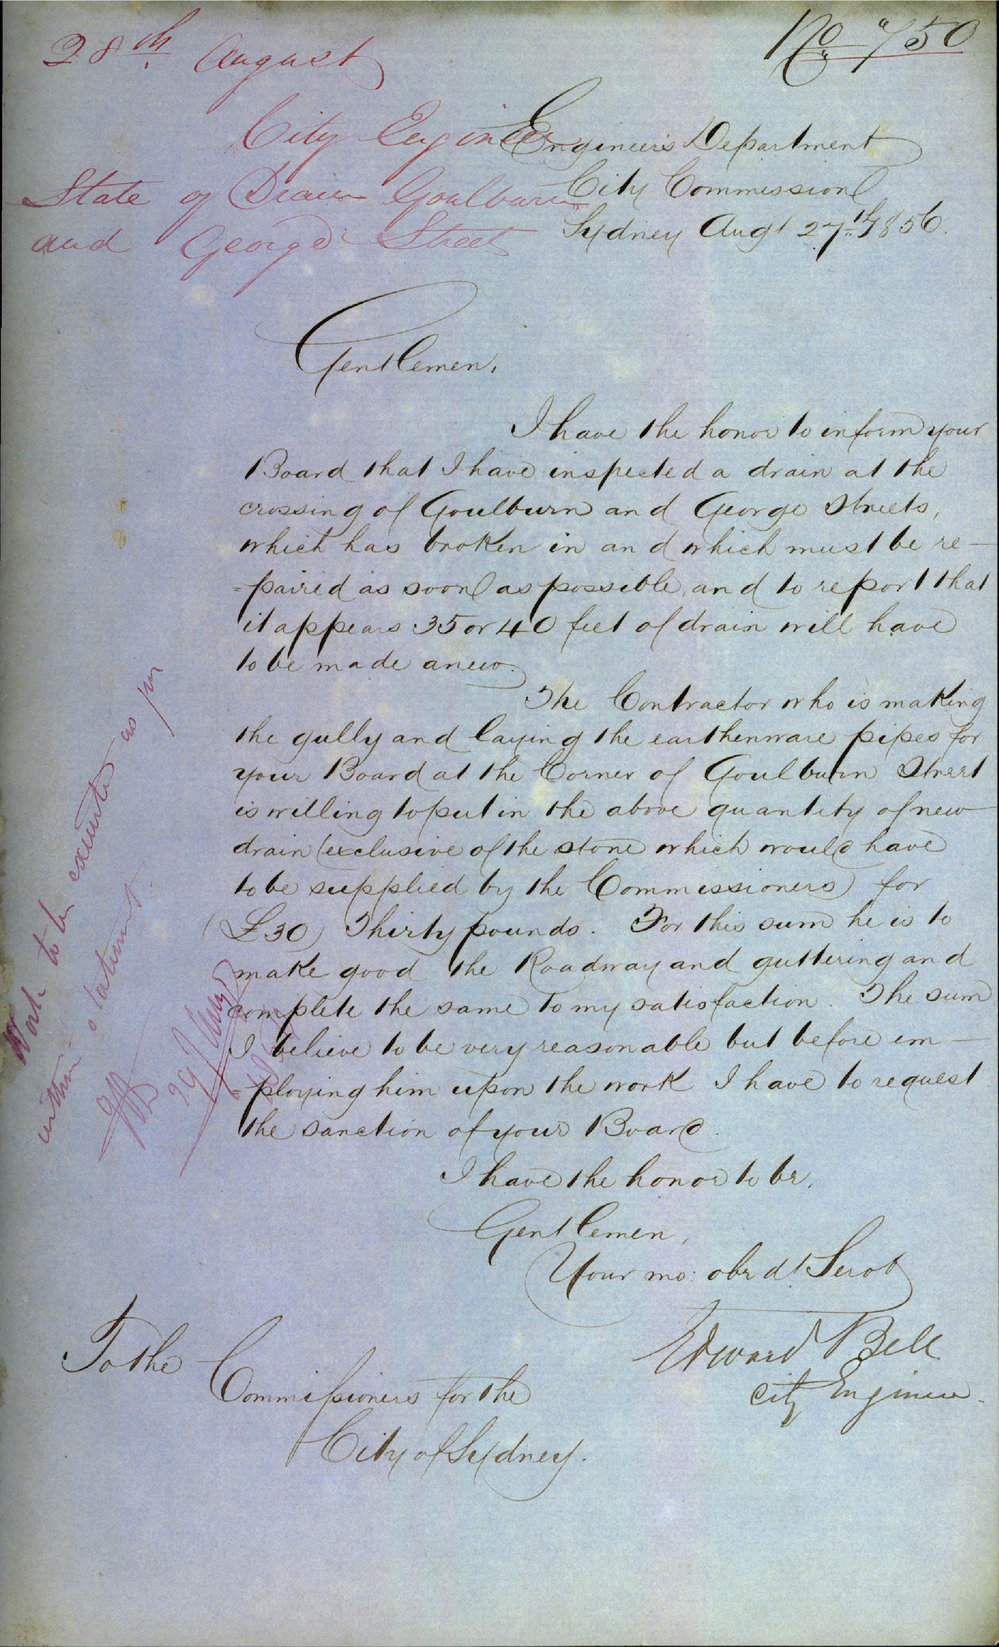 28th August
No 750
City Engineer
State of Drain Goulburn
and George Street
Engineer's Department
City Commission
Sydney Augt 27th 1856.
Gentlemen,
I have the honor to inform your
Board that I have inspected a drain at the
crossing of Goulburn and George Streets,
which has broken in and which must be re-
-paired as soon as possible, and to report that
it appears 35 or 40 feet of drain will have
to be made anew.
The Contractor who is making
the gully and laying the earthenware pipes for
your Board at the Corner of Goulburn Street
is willing to put in the above quantity of new
drain (exclusive of the stone which would have
to be supplied by the Commissioners) for
(£30) Thirty pounds. For this sum he is to
make good the Roadway and guttering and
complete the same to my satisfaction. The sum
I believe to be very reasonable but before em-
-ploying him upon the work I have to request
the sanction of your Board.
I have the honor to be,
Gentlemen,
Your mo: obedt Servt
Edward Bell
City Engineer.
To the
Commissioners for the
City of Sydney.
Work to be executed as per
within statement.
29